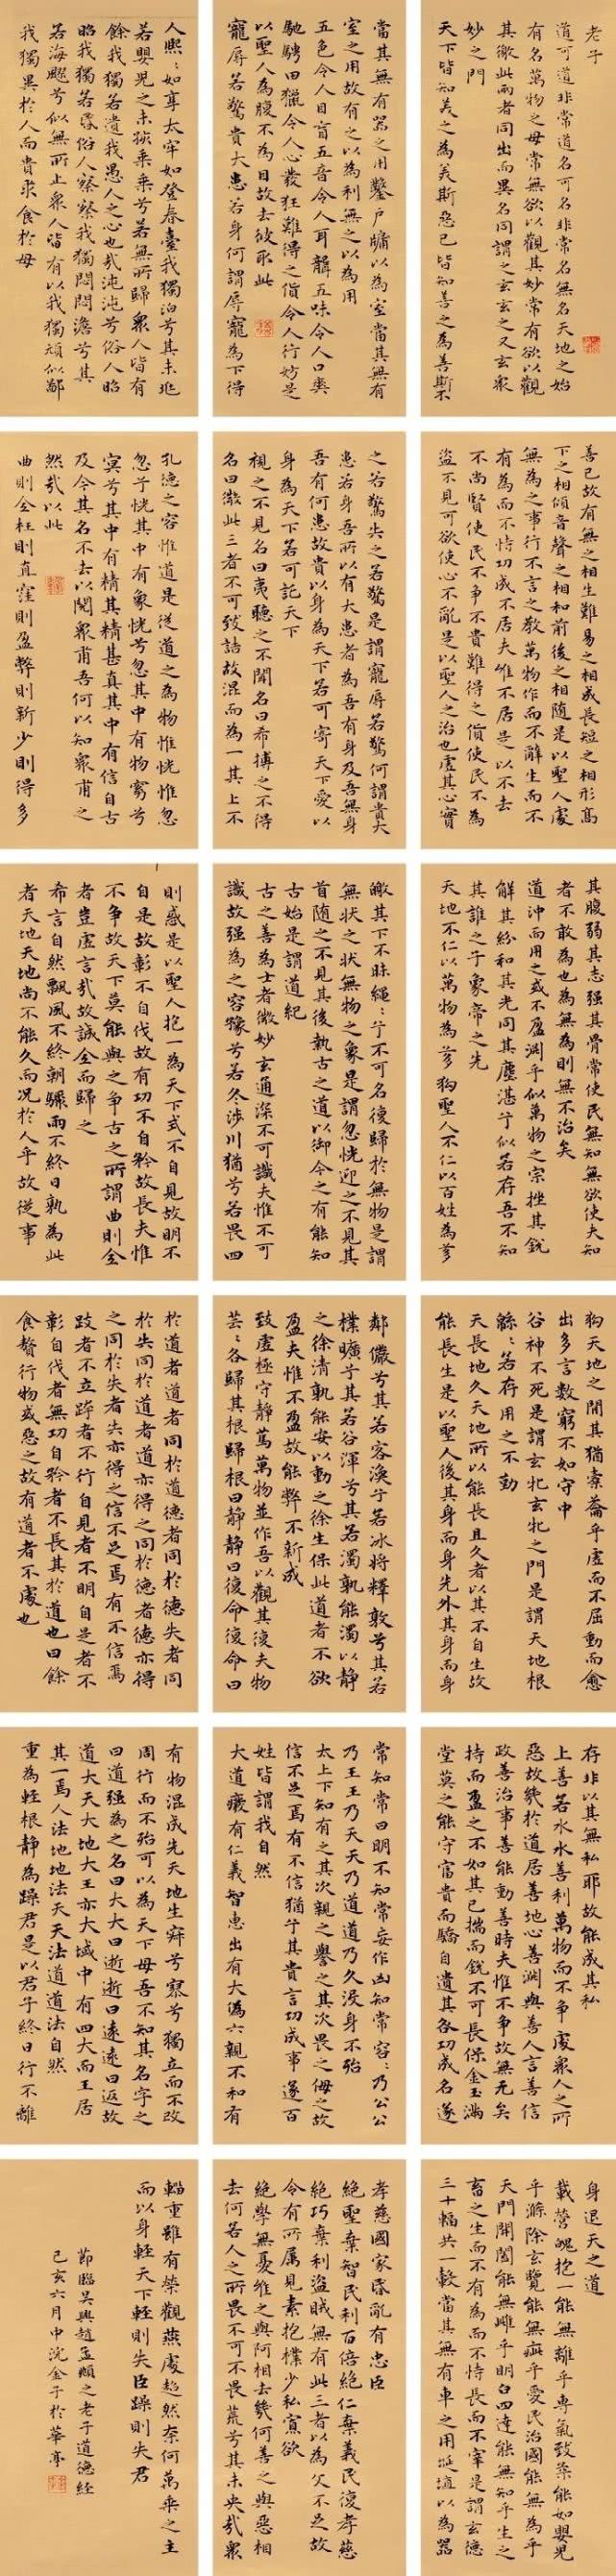 老子
道可道非常道名可名非常名無名天地之始
有名萬物之母常無欲以觀其妙常有欲以觀
其徼此兩者同出而異名同謂之玄玄之又玄衆
妙之門
天下皆知美之為美斯惡已皆知善之為善斯不
善已故有無之相生難易之相成長短之相形高
下之相傾音聲之相和前後之相隨是以聖人處
無為之事行不言之教萬物作而不辭生而不
有為而不恃功成不居夫唯不居是以不去
不尚賢使民不争不貴難得之貨使民不為
盜不見可欲使心不亂是以聖人之治也虛其心實
其腹弱其志强其骨常使民無知無欲使夫知
者不敢為也為無為則無不治矣
道沖而用之或不盈淵乎似萬物之宗挫其銳
解其紛和其光同其塵湛兮似若存吾不知
其誰之子象帝之先
天地不仁以萬物為芻狗聖人不仁以百姓為芻
狗天地之間其猶橐籥乎虛而不屈動而愈
出多言數窮不如守中
谷神不死是謂玄牝玄牝之門是謂天地根
緜〻若存用之不勤
天長地久天地所以能長且久者以其不自生故
能長生是以聖人後其身而身先外其身而身
存非以其無私耶故能成其私
上善若水水善利萬物而不争處衆人之所
惡故幾於道居善地心善淵與善人言善信
政善治事善能動善時夫惟不争故無尤矣
持而盈之不如其已揣而銳不可長保金玉滿
堂莫之能守富貴而驕自遺其咎功成名遂
身退天之道
載營魄抱一能無離乎專氣致柔能如嬰兒
乎滌除玄覽能無疵乎愛民治國能無為乎
天門開闔能無雌乎明白四達能無知乎生之
畜之生而不有為而不恃長而不宰是謂玄德
三十輻共一轂當其無有車之用埏埴以為器
當其無有器之用鑿戶牖以為室當其無有
室之用故有之以為利無之以為用
五色令人目盲五音令人耳聾五味令人口爽
馳騁田獵令人心發狂難得之貨令人行妨是
以聖人為腹不為目故去彼取此
寵辱若驚貴大患若身何謂辱寵為下得
之若驚失之若驚是謂寵辱若驚何謂貴大
患若身吾所以有大患者為吾有身及吾無身
吾有何患故貴以身為天下若可寄天下愛以
身為天下若可託天下
視之不見名曰夷聽之不聞名曰希搏之不得
名曰微此三者不可致詰故混而為一其上不
皦其下不昧繩〻兮不可名復歸於無物是謂
無狀之狀無物之象是謂忽恍迎之不見其
首隨之不見其後執古之道以御今之有能知
古始是謂道紀
古之善為士者微妙玄通深不可識夫惟不可
識故强為之容豫兮若冬涉川猶兮若畏四
鄰儼兮其若客渙兮若冰將釋敦兮其若
樸曠兮其若谷渾兮其若濁孰能濁以静
之徐清孰能安以動之徐生保此道者不欲
盈夫惟不盈故能弊不新成
致虛極守静篤萬物並作吾以觀其復夫物
芸〻各歸其根歸根曰静静曰復命復命曰
常知常曰明不知常妄作凶知常容〻乃公公
乃王王乃天天乃道道乃久没身不殆
太上下知有之其次親之譽之其次畏之侮之故
信不足焉有不信猶兮其貴言功成事遂百
姓皆謂我自然
大道癈有仁義智惠出有大偽六親不和有
孝慈國家昏亂有忠臣
絶聖棄智民利百倍絶仁棄義民復孝慈
絶巧棄利盜賊無有此三者以為文不足故
令有所属見素抱樸少私寡欲
絶學無憂唯之與阿相去幾何善之與惡相
去何若人之所畏不可不畏荒兮其未央哉衆
人熙〻如享太牢如登春臺我獨泊兮其未兆
若嬰兒之未孩乘乘兮若無所歸衆人皆有
餘我獨若遺我愚人之心也哉沌沌兮俗人昭
昭我獨若昏俗人察察我獨悶悶澹兮其
若海飂兮似無所止衆人皆有以我獨頑似鄙
我獨異於人而貴求食於母
孔德之容惟道是從道之為物惟恍惟忽
忽兮恍其中有象恍兮忽其中有物窈兮
冥兮其中有精其精甚真其中有信自古
及今其名不去以閱衆甫吾何以知衆甫之
然哉以此
曲則全枉則直窪則盈弊則新少則得多
則惑是以聖人抱一為天下式不自見故明不
自是故彰不自伐故有功不自矜故長夫惟
不争故天下莫能與之争古之所謂曲則全
者豈虛言哉故誠全而歸之
希言自然飄風不終朝驟雨不終日孰為此
者天地天地尚不能久而况於人乎故從事
於道者道者同於道德者同於德失者同
於失同於道者道亦得之同於德者德亦得
之同於失者失亦得之信不足焉有不信焉
跂者不立跨者不行自見者不明自是者不
彰自伐者無功自矜者不長其於道也曰餘
食贅行物或惡之故有道者不處也
有物混成先天地生寂兮寥兮獨立而不改
周行而不殆可以為天下母吾不知其名字之
曰道强為之名曰大大曰逝逝曰遠遠曰返故
道大天大地大王亦大域中有四大而王居
其一焉人法地地法天天法道道法自然
重為輕根静為躁君是以君子終日行不離
輜重雖有榮觀燕處超然奈何萬乘之主
而以身輕天下輕則失臣躁則失君
節臨吴興趙孟頫之老子道德經
己亥六月中沈金于於華亭